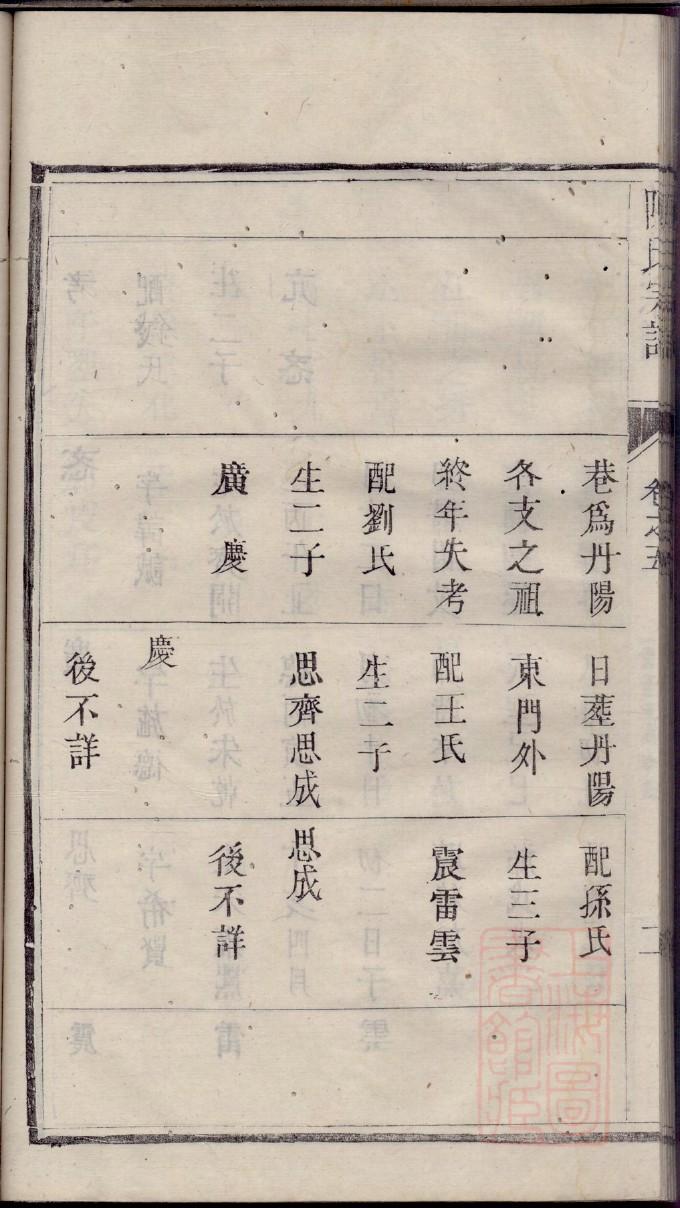 陳氏宗譜
卷之五
二
巷爲丹陽
各支之祖
終年失考
配劉氏
生二子
廣慶
日塟丹陽
東門外
配王氏
生二子
思齊思成
慶
後不詳
配孫氏
生三子
震雷雲
思成
後不詳
上海圖書館藏